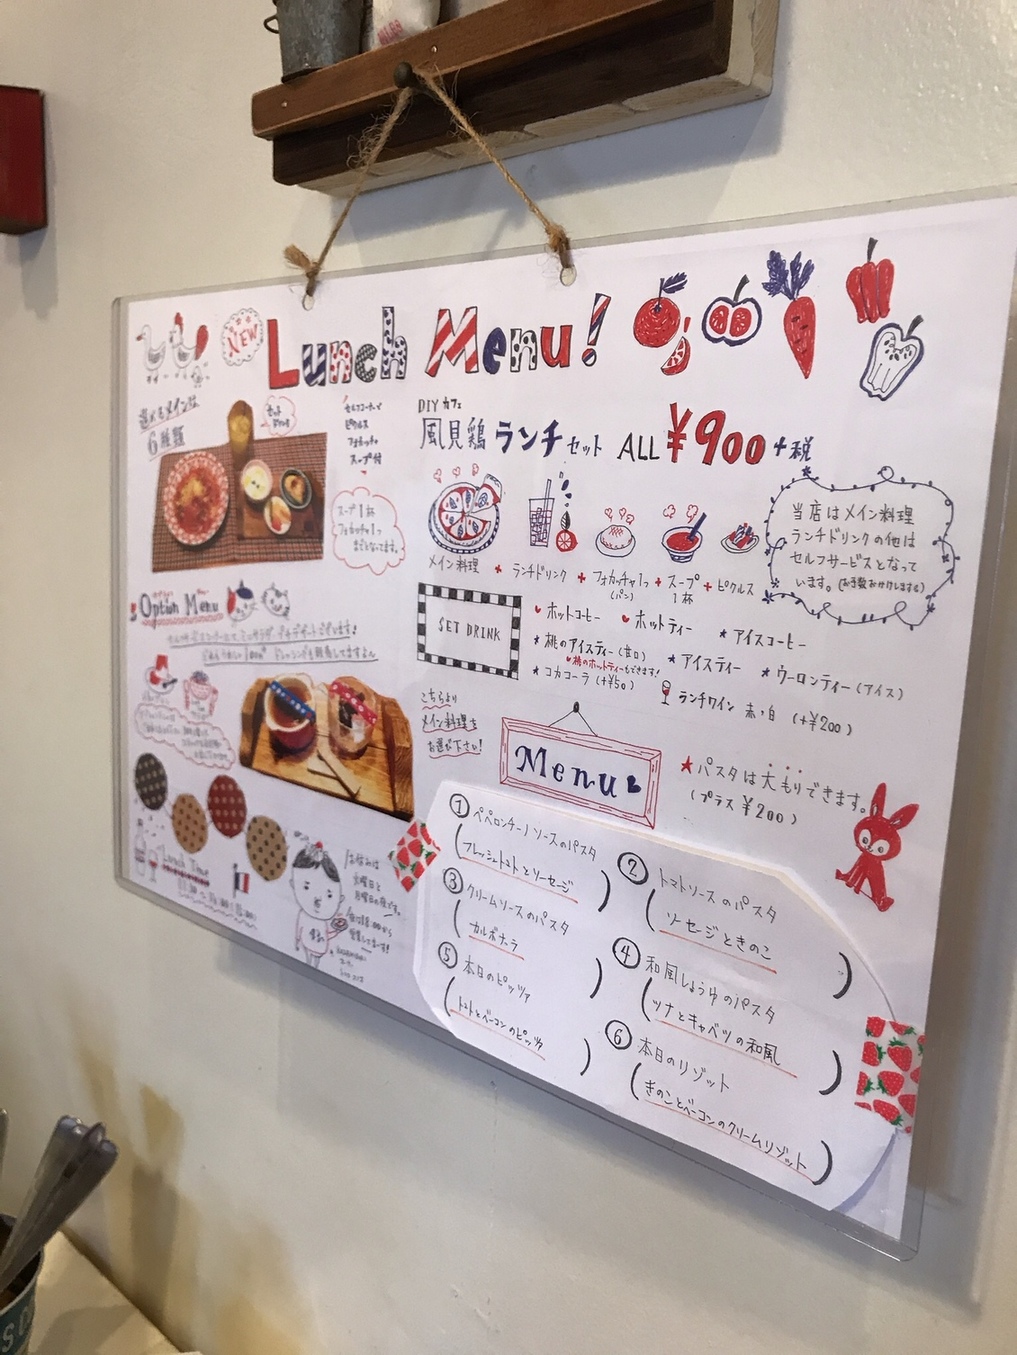 NEW
Lunch Menu!
選べるメインは
6種類
セット
ドリンク
セルフコーナーで
ピクルス
フォカッチャ
スープ付
スープ1杯
フォカッチャ1つ
までとなってます。
DIYカフェ
風見鶏ランチセット ALL ¥900+税
メイン料理 + ランチドリンク + フォカッチャ1つ(パン) + スープ1杯 + ピクルス
当店はメイン料理
ランチドリンクの他は
セルフサービスとなって
います。(お手数おかけしますm)
SET DRINK
ホットコーヒー ホットティー ★アイスコーヒー
★桃のアイスティー(甘口) ★アイスティー ★ウーロンティー(アイス)
桃のホットティーもできます!
★コカコーラ(+¥50) ランチワイン 赤・白 (+¥200)
Option Menu
こちらより
メイン料理を
お選び下さい!
Menu
★パスタは大もりできます。
(プラス ¥200)
① ペペロンチーノソースのパスタ
(フレッシュトマトとソーセージ)
② トマトソースのパスタ
(ソーセージときのこ)
③ クリームソースのパスタ
(カルボナーラ)
④ 和風しょうゆのパスタ
(ツナとキャベツの和風)
⑤ 本日のピッツァ
(トマトとベーコンのピッツァ)
⑥ 本日のリゾット
(きのことベーコンのクリームリゾット)
Lunch Time
お休みは
火曜日と
月曜日の夜です。
夜は18:00から
営業してます!